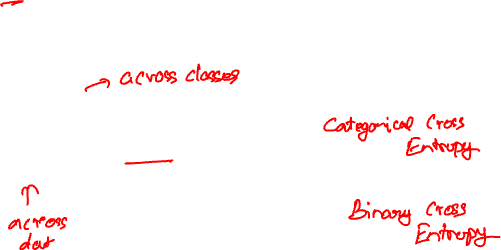 across classes
Categorical Cross
Entropy
across
dat
Binary Cross
Entropy